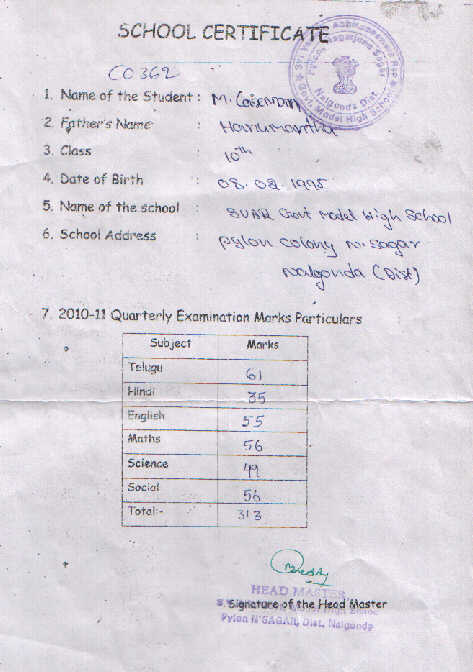 SCHOOL CERTIFICATE
CO362
1. Name of the Student : M.
2. Father's Name : Hanumanthu
3. Class : 10th
4. Date of Birth : 08.02.1995
5. Name of the school : SVNU Govt Model High School
6. School Address : pylon colony N. sagar
Nalgonda (Dist)
7. 2010-11 Quarterly Examination Marks Particulars
Subject Marks
Telugu 61
Hindi 35
English 55
Maths 56
Science 49
Social 56
Total:- 313
HEAD MASTER
Signature of the Head Master
Pylon N'SAGAR, Dist, Nalgonda
Nalgonda Dist.
Govt. Model High School